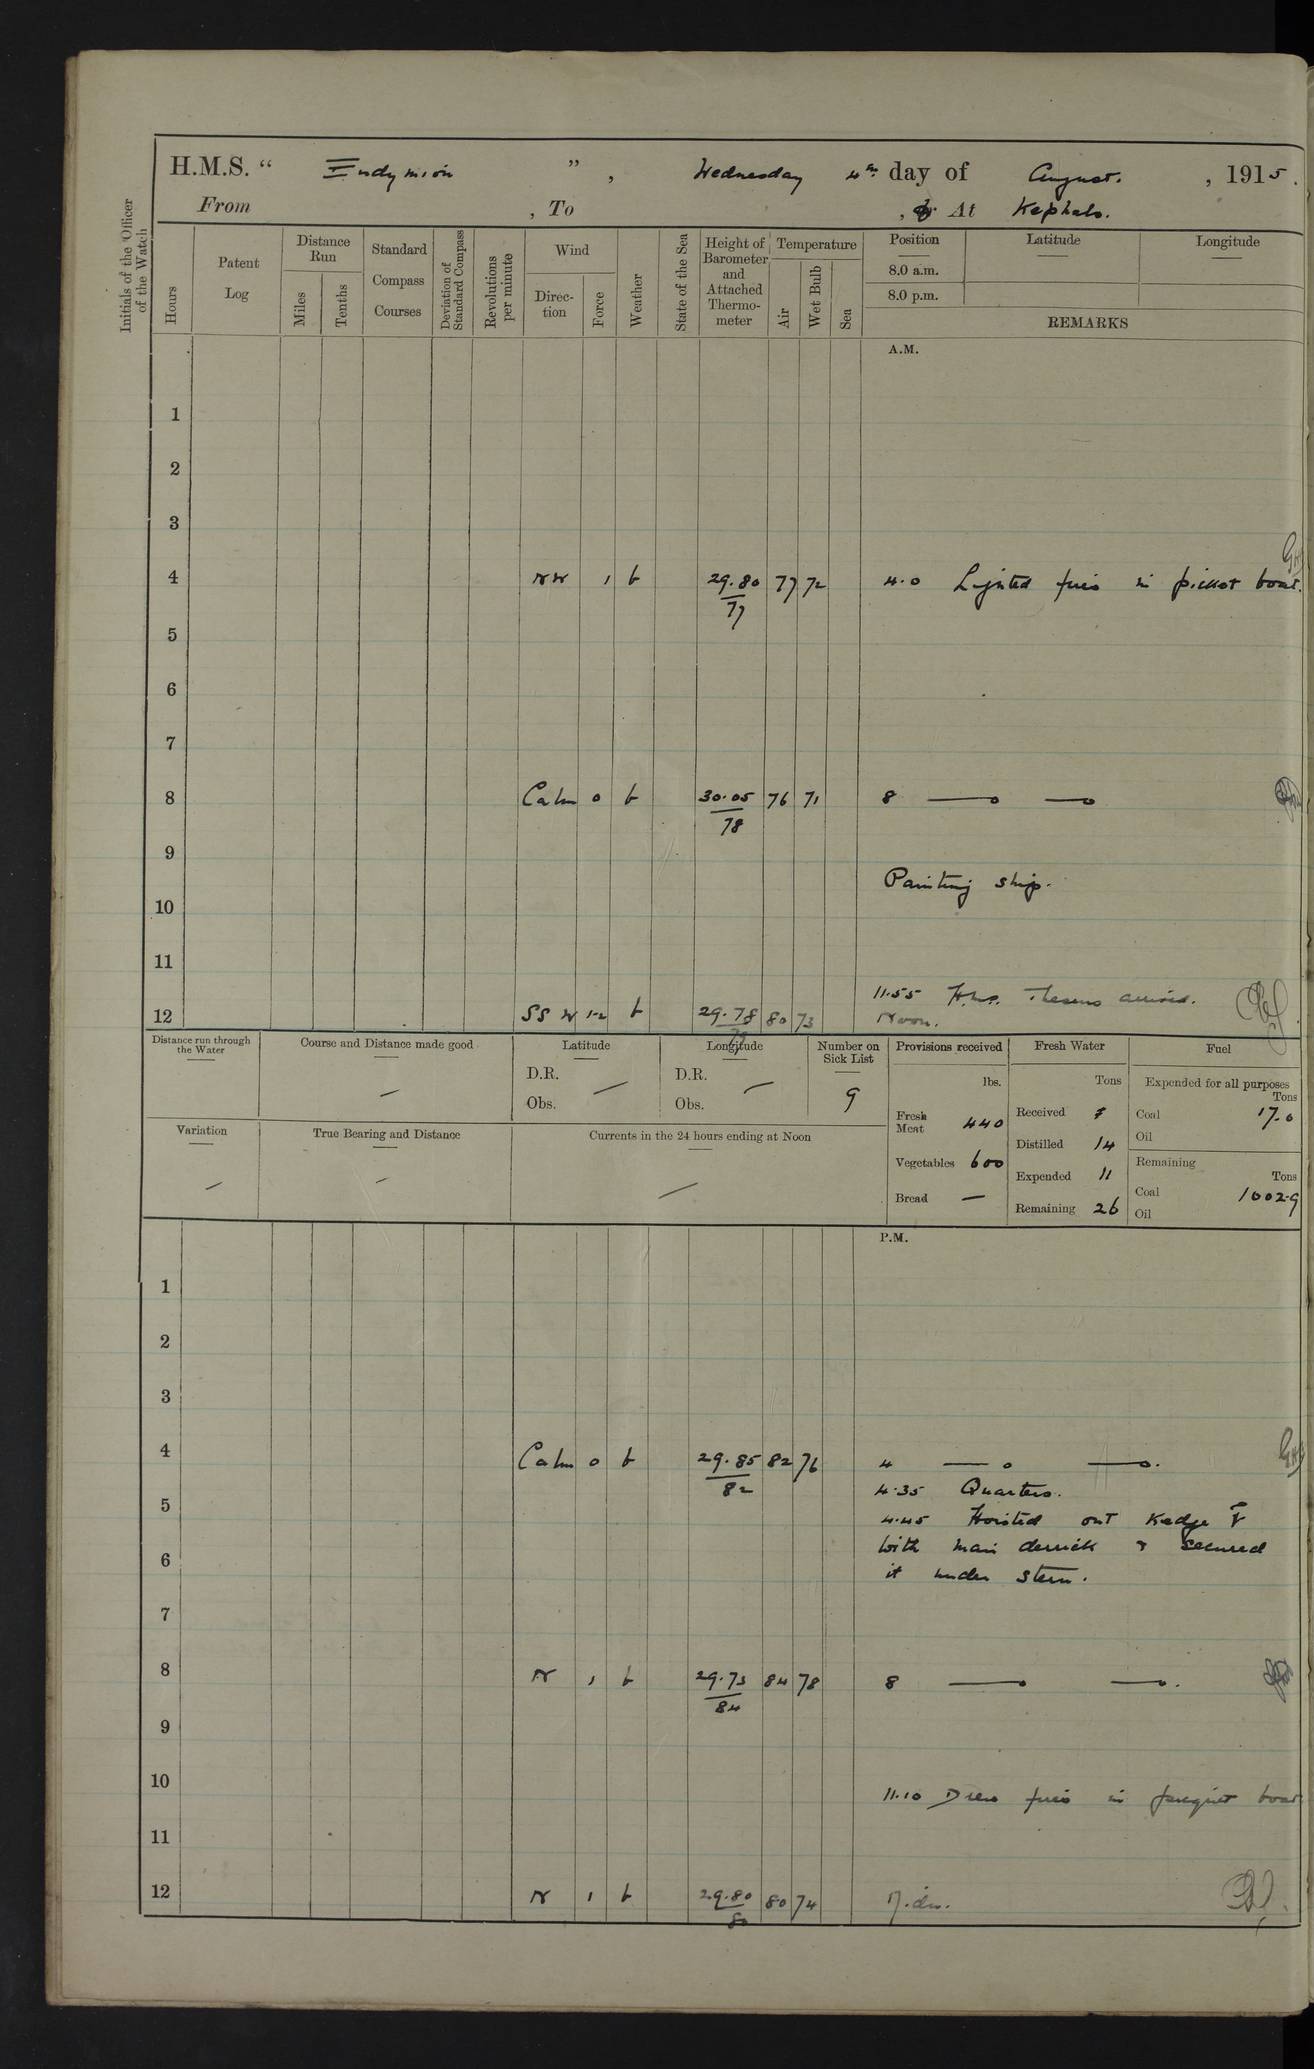 H.M.S. “ Endymion ” , Wednesday 4th day of August. , 1915.
From , To , or At Kephalo.
Initials of the Officer of the Watch
Hours
Patent Log
Distance Run
Miles
Tenths
Standard Compass Courses
Deviation of Standard Compass
Revolutions per minute
Wind
Direc-tion
Force
Weather
State of the Sea
Height of Barometer and Attached Thermo-meter
Temperature
Air
Wet Bulb
Sea
Position
Latitude
Longitude
8.0 a.m.
8.0 p.m.
REMARKS
A.M.
1
2
3
4 NW 1 b 29.80 77 77 72 4.0 Lighted fires in picket boat.
5
6
7
8 Calm 0 b 30.05 78 76 71 8 —o —o
9
Painting ship.
10
11
11.55 H.M.S. Theseus arrived.
12 SSW 1-2 b 29.78 79 80 73 Noon.
Distance run through the Water
Course and Distance made good —
Latitude
D.R. —
Obs.
Longitude
D.R. —
Obs.
Number on Sick List
9
Provisions received
lbs.
Fresh Meat 440
Vegetables 600
Bread —
Fresh Water
Tons
Received
Distilled 14
Expended 11
Remaining 26
Fuel
Expended for all purposes
Tons
Coal 17.0
Oil
Remaining
Tons
Coal 1002.9
Oil
Variation —
True Bearing and Distance —
Currents in the 24 hours ending at Noon —
P.M.
1
2
3
4 Calm 0 b 29.85 82 82 76 4 —o —o.
4.35 Quarters.
5 4.45 Hoisted out Kedge
with main derrick & secured
6 it under stern.
7
8 N 1 b 29.73 84 84 78 8 —o —o.
9
10
11.10 Drew fires in picquet boat
11
12 N 1 b 29.80 80 80 74 Mdn.